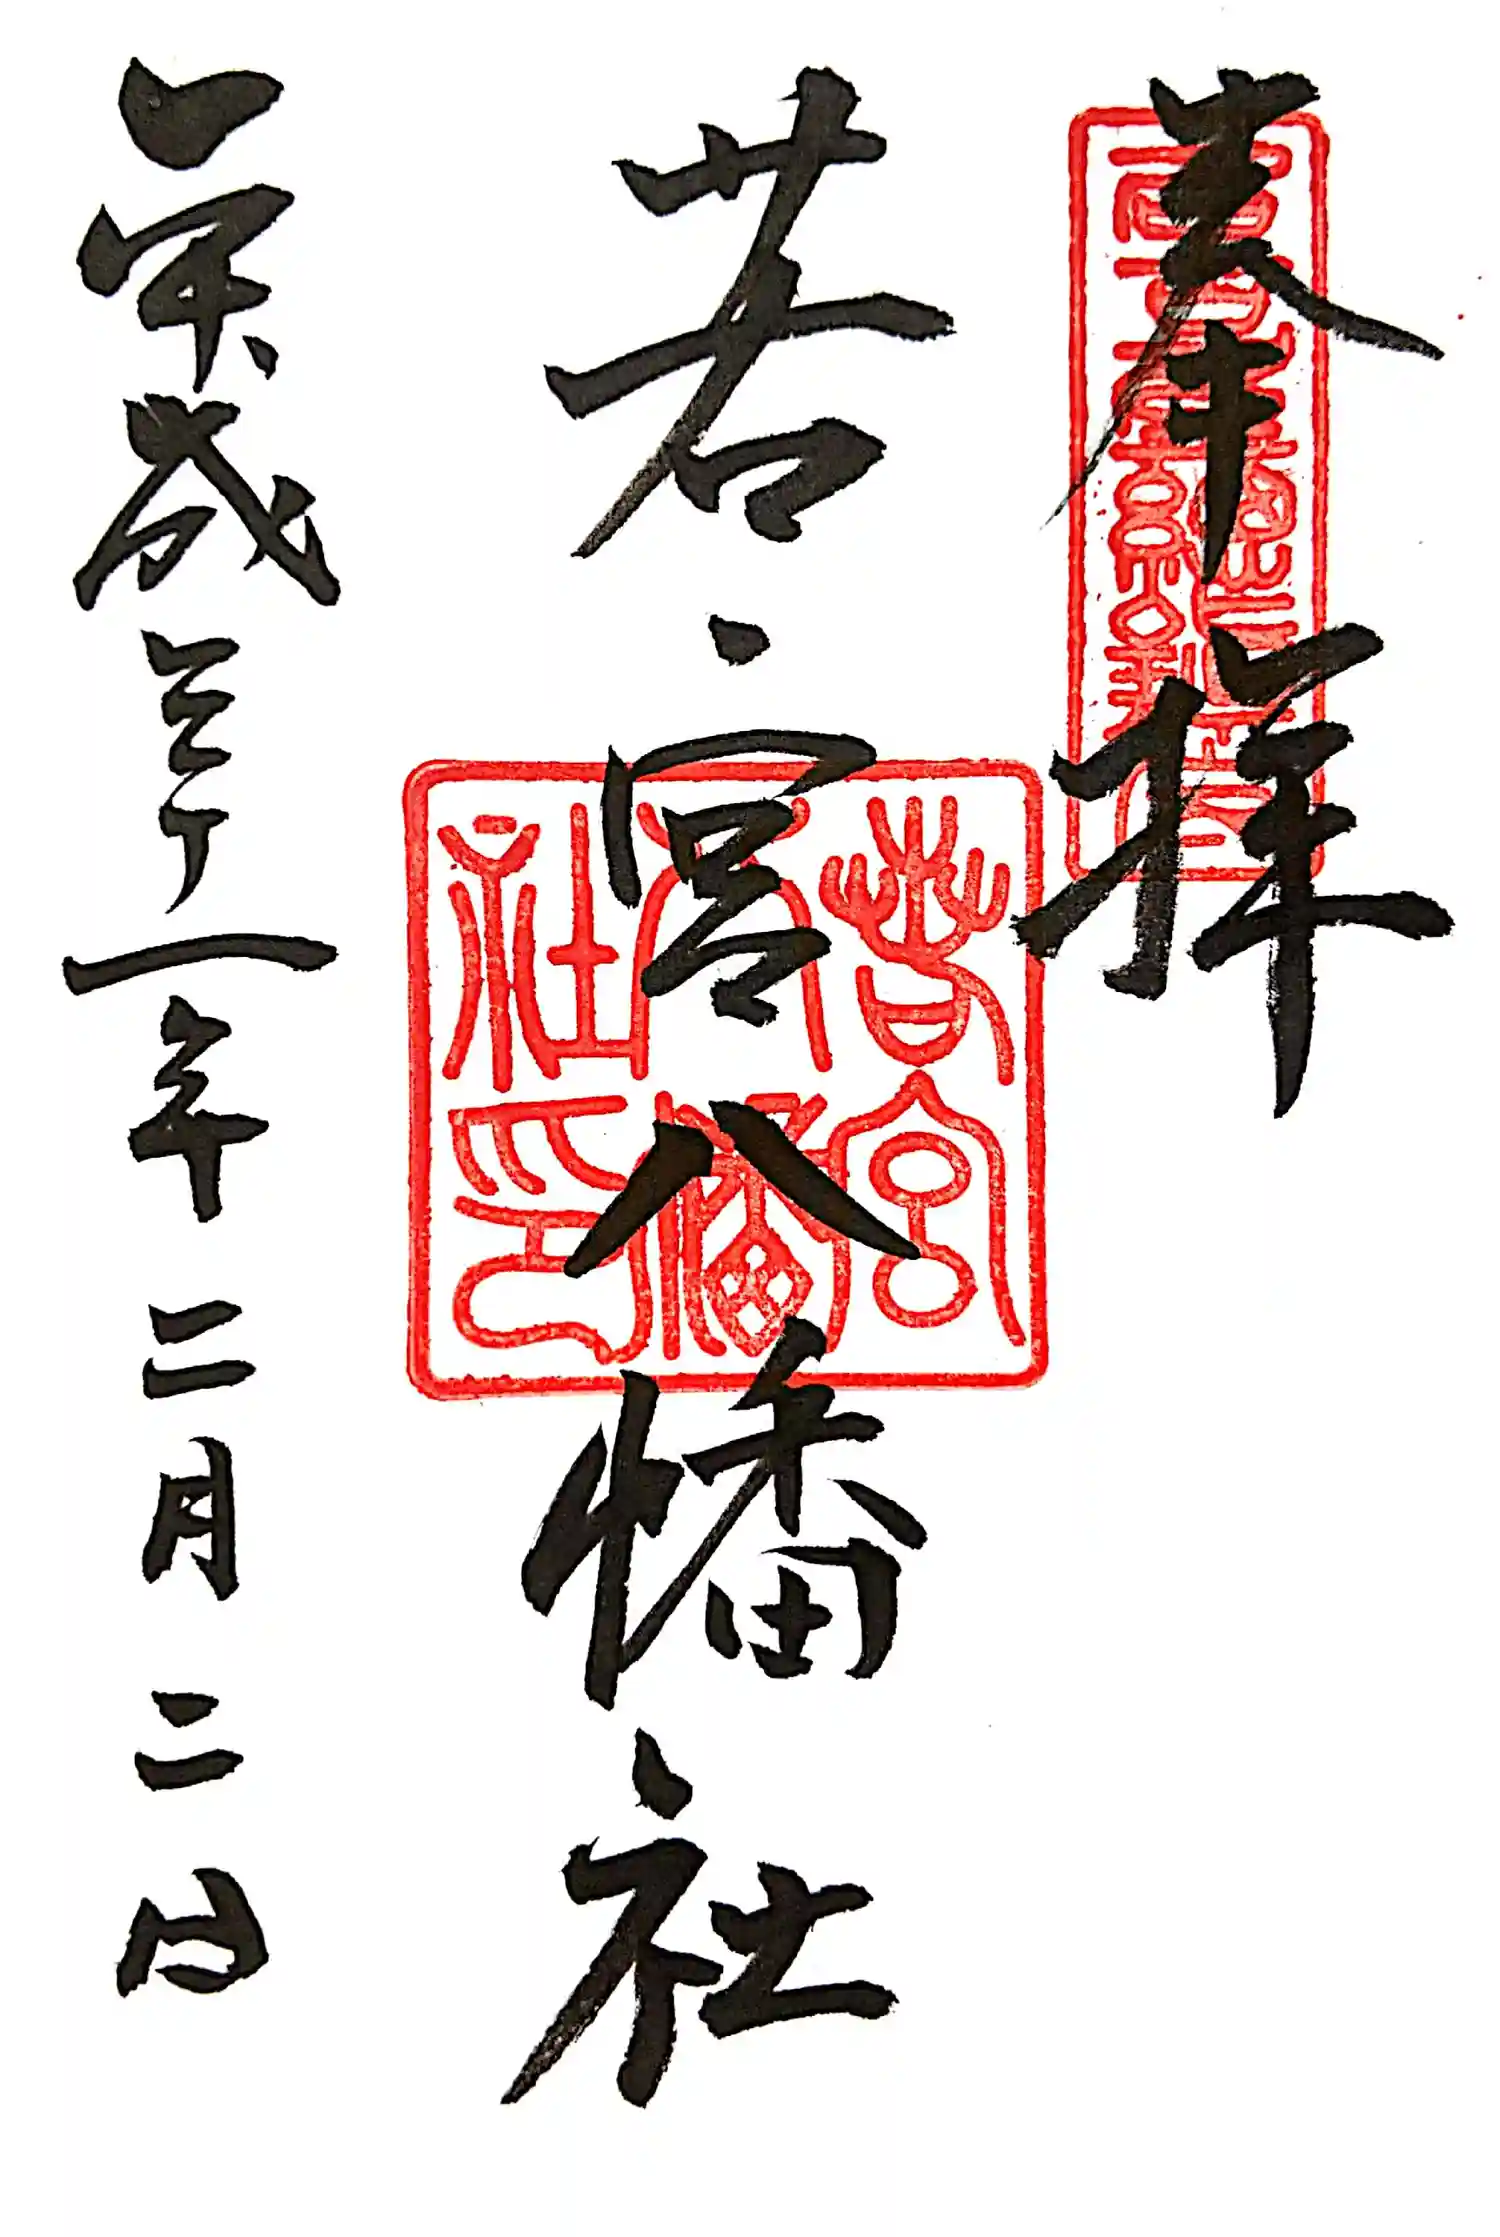 奉拝
若宮八幡社
平成三十一年二月二日
若宮
八幡
社印